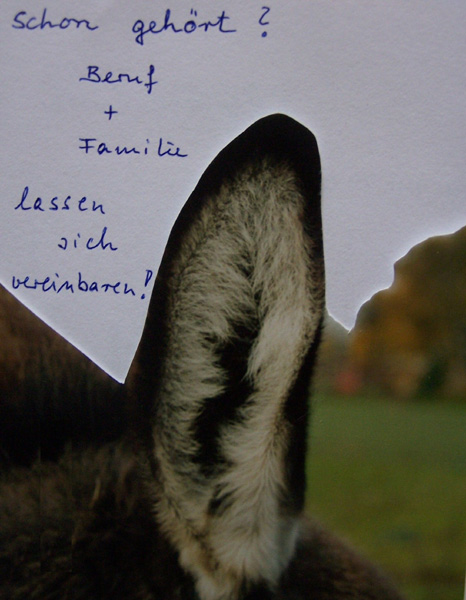 Schon gehört?
Beruf
+
Familie
lassen
sich
vereinbaren!